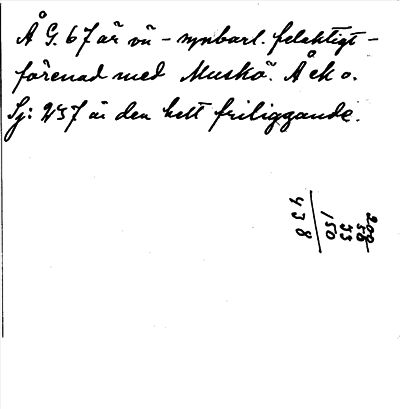 Å G. 67 är vü - synbarl. felaktigt -
förenad med Muskö. Å ek o.
Sj: 237 är den helt friliggande.
200
58
33
150
438